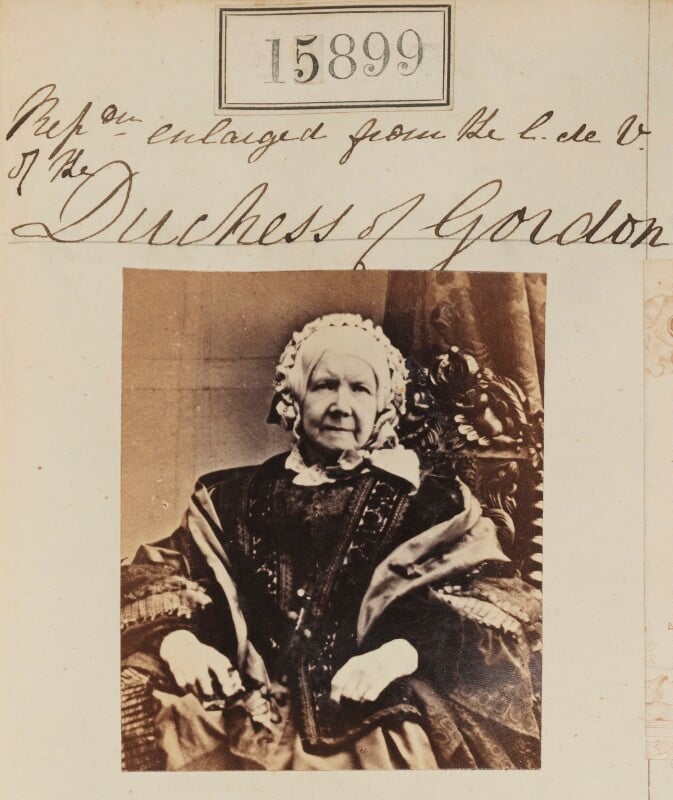 15899
Rep on enlarged from the C. de V.
of the
Duchess of Gordon